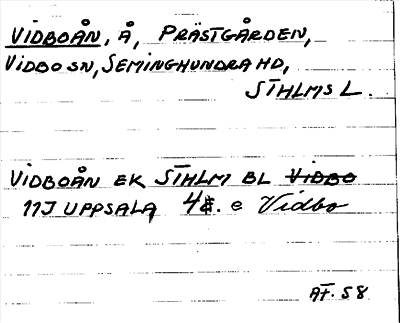 VIDBOÅN, Å, PRÄSTGÅRDEN,
VIDBO SN, SEMINGHUNDRA HD,
STHLMS L.
VIDBOÅN EK STHLM BL VIDBO
11J UPPSALA 4. e Vidbo
AF. 58